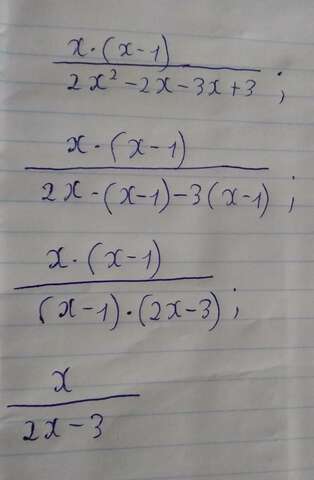 x · (x-1)
2x² - 2x - 3x + 3 ;
x · (x-1)
2x · (x-1) - 3(x-1) ;
x · (x-1)
(x-1) · (2x-3) ;
x
2x - 3